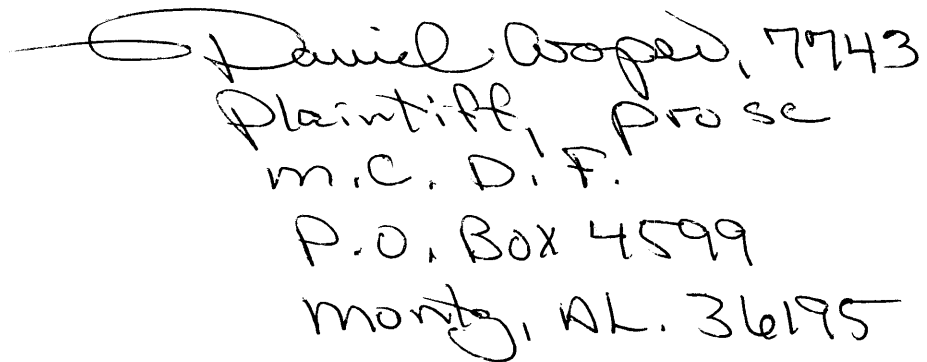 Daniel Cooper, 7743
Plaintiff, prose
M.C.D.F.
P.O. Box 4599
Montg, AL. 36195